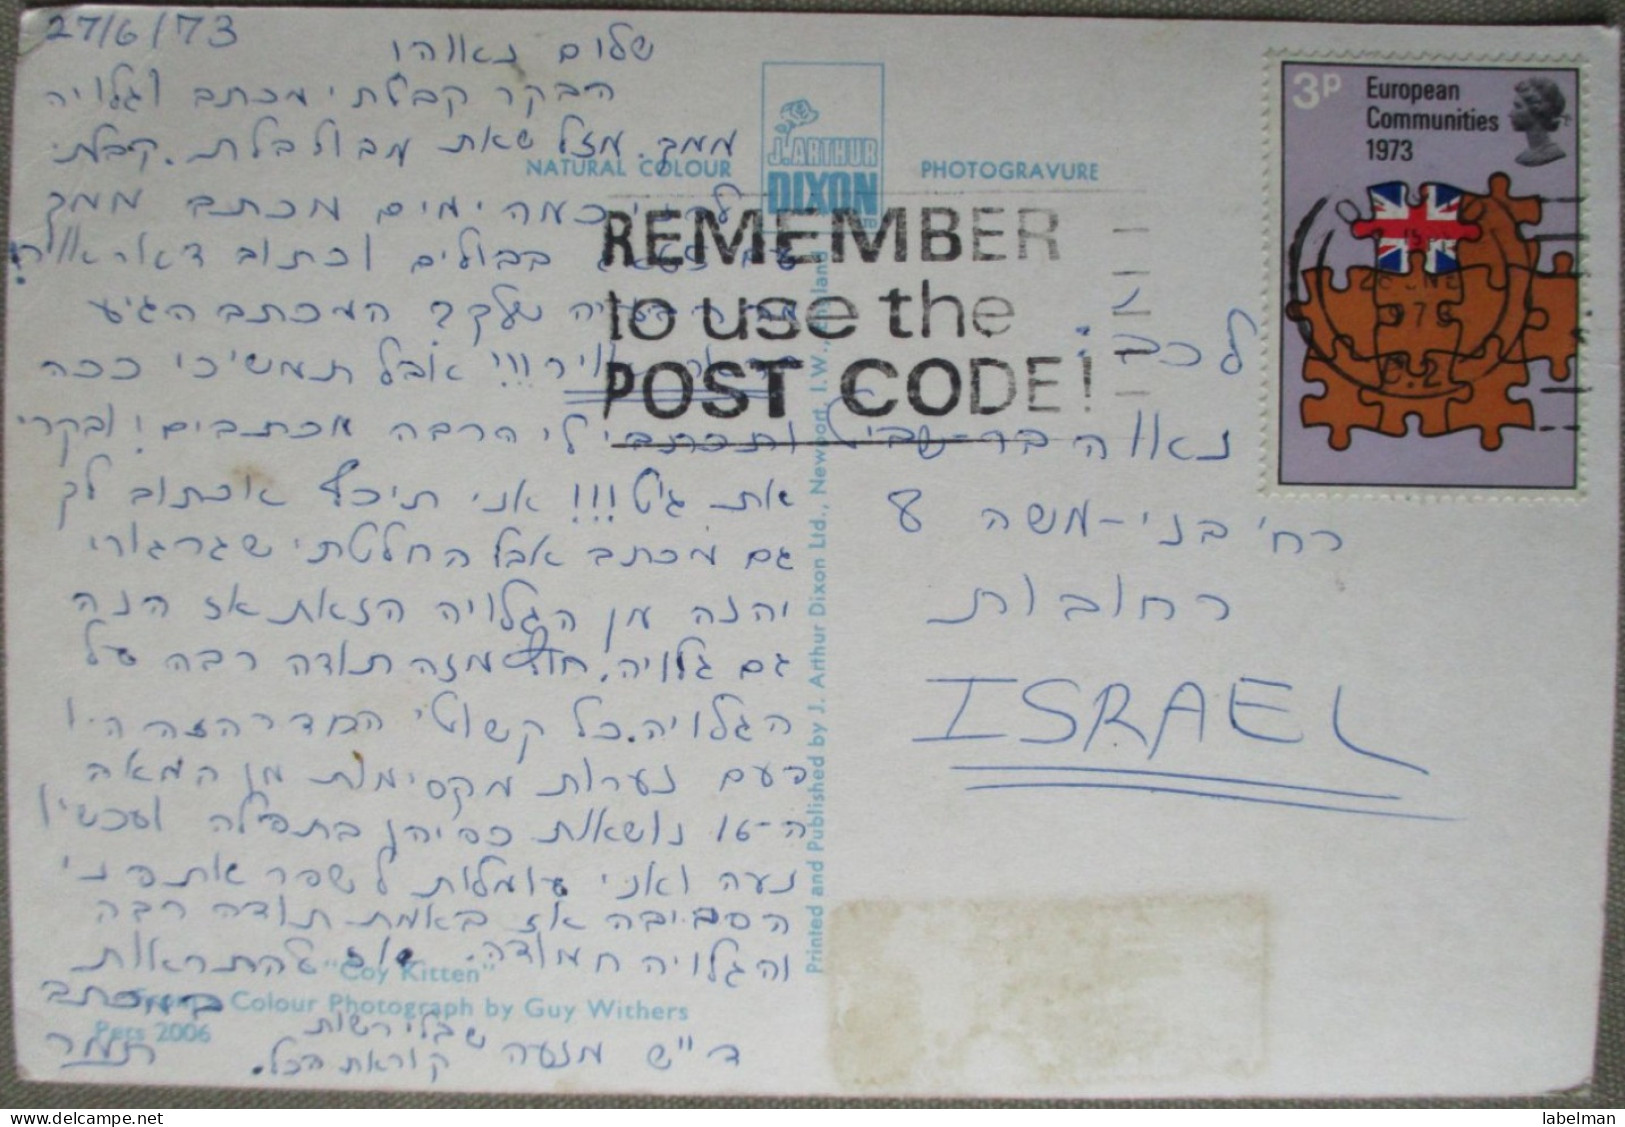 27/6/73
שלום נאווה!
הבקר קבלתי מכתב וגלויה
ממך. מזל שאת מבולבלת. קבלתי
כמה ימים מכתב ממך
בבולים וכתוב דאר אוויר!
המכתב הגיע
אוויר!!! אבל תמשיכי ככה
ותכתבי לי הרבה מכתבים! ובקרי
את גיט!!! אני תיכף אכתוב לך
גם מכתב אבל החלטתי שגרגורי
יהנה מן הגלויה הזאת אז הנה
גם גלויה. חוץ מזה תודה רבה על
הגלויה. כל קשוטי החדר הזה היו
פעם נערות מקסימות מן המאה
ה-16 נושאות כפיהן בתפילה ועכשיו
נעה ואני עומלות לשפר את פני
הסביבה אז באמת תודה רבה
והגלויה חמודה. אז להתראות
במכתב
תמר
ד"ש מנעה
שבלי רשות
קוראת הכל.
NATURAL COLOUR
J. ARTHUR
DIXON
PHOTOGRAVURE
REMEMBER
to use the
POST CODE!
3p
European
Communities
1973
לכב'
נאווה בר-שביל
רח' בני-משה 8
רחובות
ISRAEL
Printed and Published by J. Arthur Dixon Ltd., Newport, I.W., England
"Coy Kitten"
Colour Photograph by Guy Withers
Pets 2006
labelman